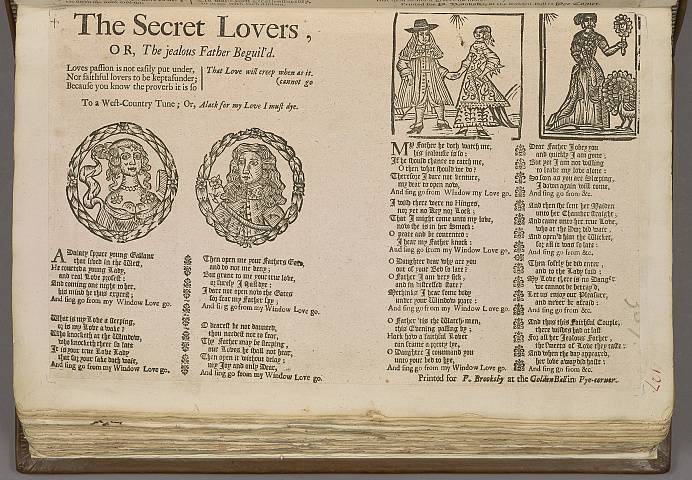 The Secret Lovers,
OR, The jealous Father Beguil'd.
Loves passion is not easily put under,
Nor faithful lovers to be kept asunder;
Because you know the proverb it is so
That Love will creep when as it
(cannot go
To a West-Country Tune; Or, Alack for my Love I must dye.
A Dainty spruce young Gallant
that lived in the West,
He courted a young Lady,
and real Love profest:
And coming one night to her,
his mind he thus exprest;
And sing go from my Window Love go.
What is my Love a sleeping,
or is my Love awake?
Who knocketh at the Window,
who knocketh there so late
It is your true Love Lady
that for your sake doth wait,
And sing go from my Window Love go.
Then open me your Fathers Gate,
and do not me deny;
But grant to me your true love,
or surely I shall dye:
I dare not open now the Gates
for fear my Father spy;
And sing go from my Window Love go.
O dearest be not daunted,
thou needest not to fear,
Thy Father may be sleeping,
our Loves he shall not hear;
Then open it without delay;
my Joy and only Dear,
And sing go from my Window Love go.
MY Father he doth watch me,
his jealousie is so:
If he should chance to catch me,
O then what should we do?
Therefore I dare not venture,
my dear to open now,
And sing go from Window my Love go.
I wish there were no Hinges,
nor yet no Key nor Lock;
That I might come unto my love,
now she is in her Smock:
O peace and be contented:
I hear my Father knock:
And sing go from my Window Love go.
O Daughter dear why are you
out of your Bed so late?
O Father I am very sick,
and in distressed state?
Methinks I hear some body
under your Window prate:
And sing go from my Window Love go.
O Father 'tis the Watch-men,
this Evening passing by;
Hark how a faithful Lover
can frame a pretty lye,
O Daughter I command you
unto your bed to hye,
And sing go from my Window Love go.
Dear Father I obey you
and quickly I am gone;
But yet I am not willing
to leave my love alone:
So soon as you are Sleeping,
I down again will come,
And sing go from &c.
And then she sent her Maiden
unto her Chamber straight;
And came unto her true Love,
who at the Door did wait,
And open'd him the Wicket,
for all it was so late:
And sing go from &c.
Then softly he did enter
and to the Lady said:
My Love there is no Danger
we cannot be betray'd,
Let us enjoy our Pleasure,
and never be afraid:
And sing go from &c.
And thus this Faithful Couple,
their wishes had at last
For all her Jealous Father,
the sweets of Love they taste:
And when the day appeared,
her love away did haste:
And sing go from &c.
Printed for P. Brooksby at the Golden Ball in Pye-corner.